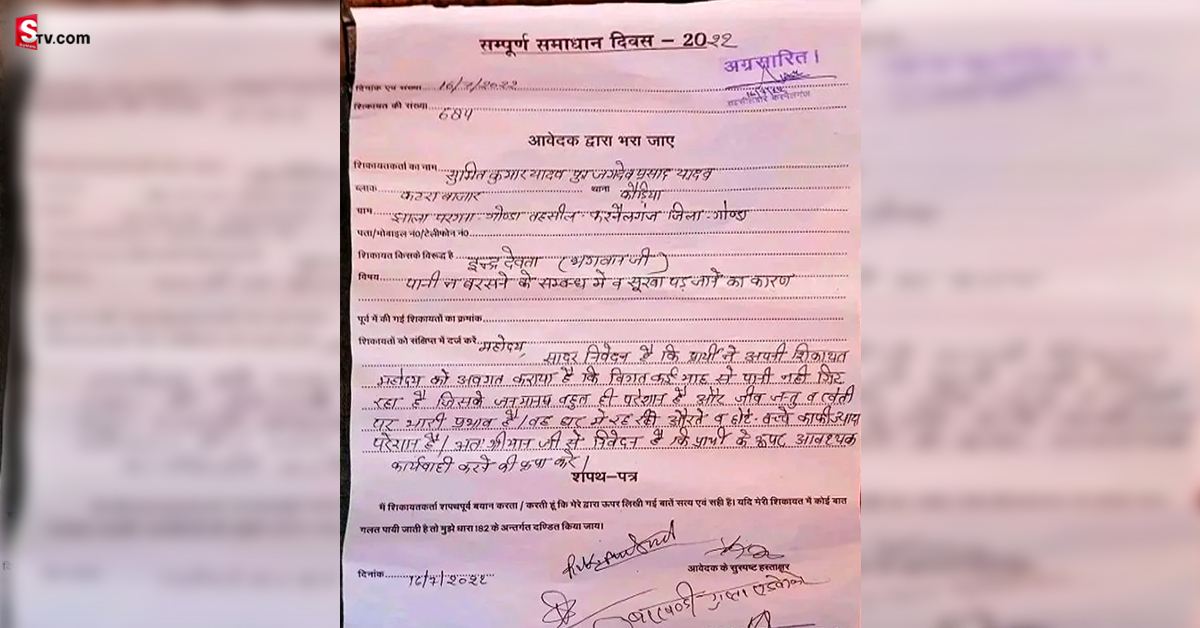 S
Tv.com
सम्पूर्ण समाधान दिवस – 20२२
अग्रसारित।
दिनांक एवं संख्या 16/7/२०२२
शिकायत की संख्या 684
आवेदक द्वारा भरा जाए
शिकायतकर्ता का नाम सुमित कुमार यादव पुत्र जगदेव प्रसाद यादव
ब्लाक कटरा बाजार थाना कौड़िया
ग्राम झाला परगना गोण्डा तहसील करनैलगंज जिला-गोण्डा
पता/मोबाइल नं0/टेलीफोन नं0
शिकायत किसके विरूद्ध है इन्द्र देवता (भगवान जी)
विषय पानी न बरसने के सम्बन्ध में व सूखा पड़ जाने का कारण
पूर्व में की गई शिकायतों का क्रमांक
शिकायतों को संक्षिप्त में दर्ज करें महोदय,
सादर निवेदन है कि प्रार्थी ने अपनी शिकायत
महोदय को अवगत कराया है कि विगत कई माह से पानी नही गिर
रहा है जिससे जनमानस बहुत ही परेशान है और जीव जन्तु व खेती
पर भारी प्रभाव है। घर में रह रही औरते व छोटे-बच्चे काफी
परेशान है। अतः श्रीमान जी से निवेदन है कि प्रार्थी के ऊपर आवश्यक
कार्यवाही करने की कृपा करें।
शपथ-पत्र
मैं शिकायतकर्ता शपथपूर्व बयान करता / करती हूं कि मेरे द्वारा ऊपर लिखी गई बातें सत्य एवं सही है। यदि मेरी शिकायत में कोई बात
गलत पायी जाती है तो मुझे धारा 182 के अन्तर्गत दण्डित किया जाय।
आवेदक के सुस्पष्ट हस्ताक्षर
दिनांक 16/7/२०२२